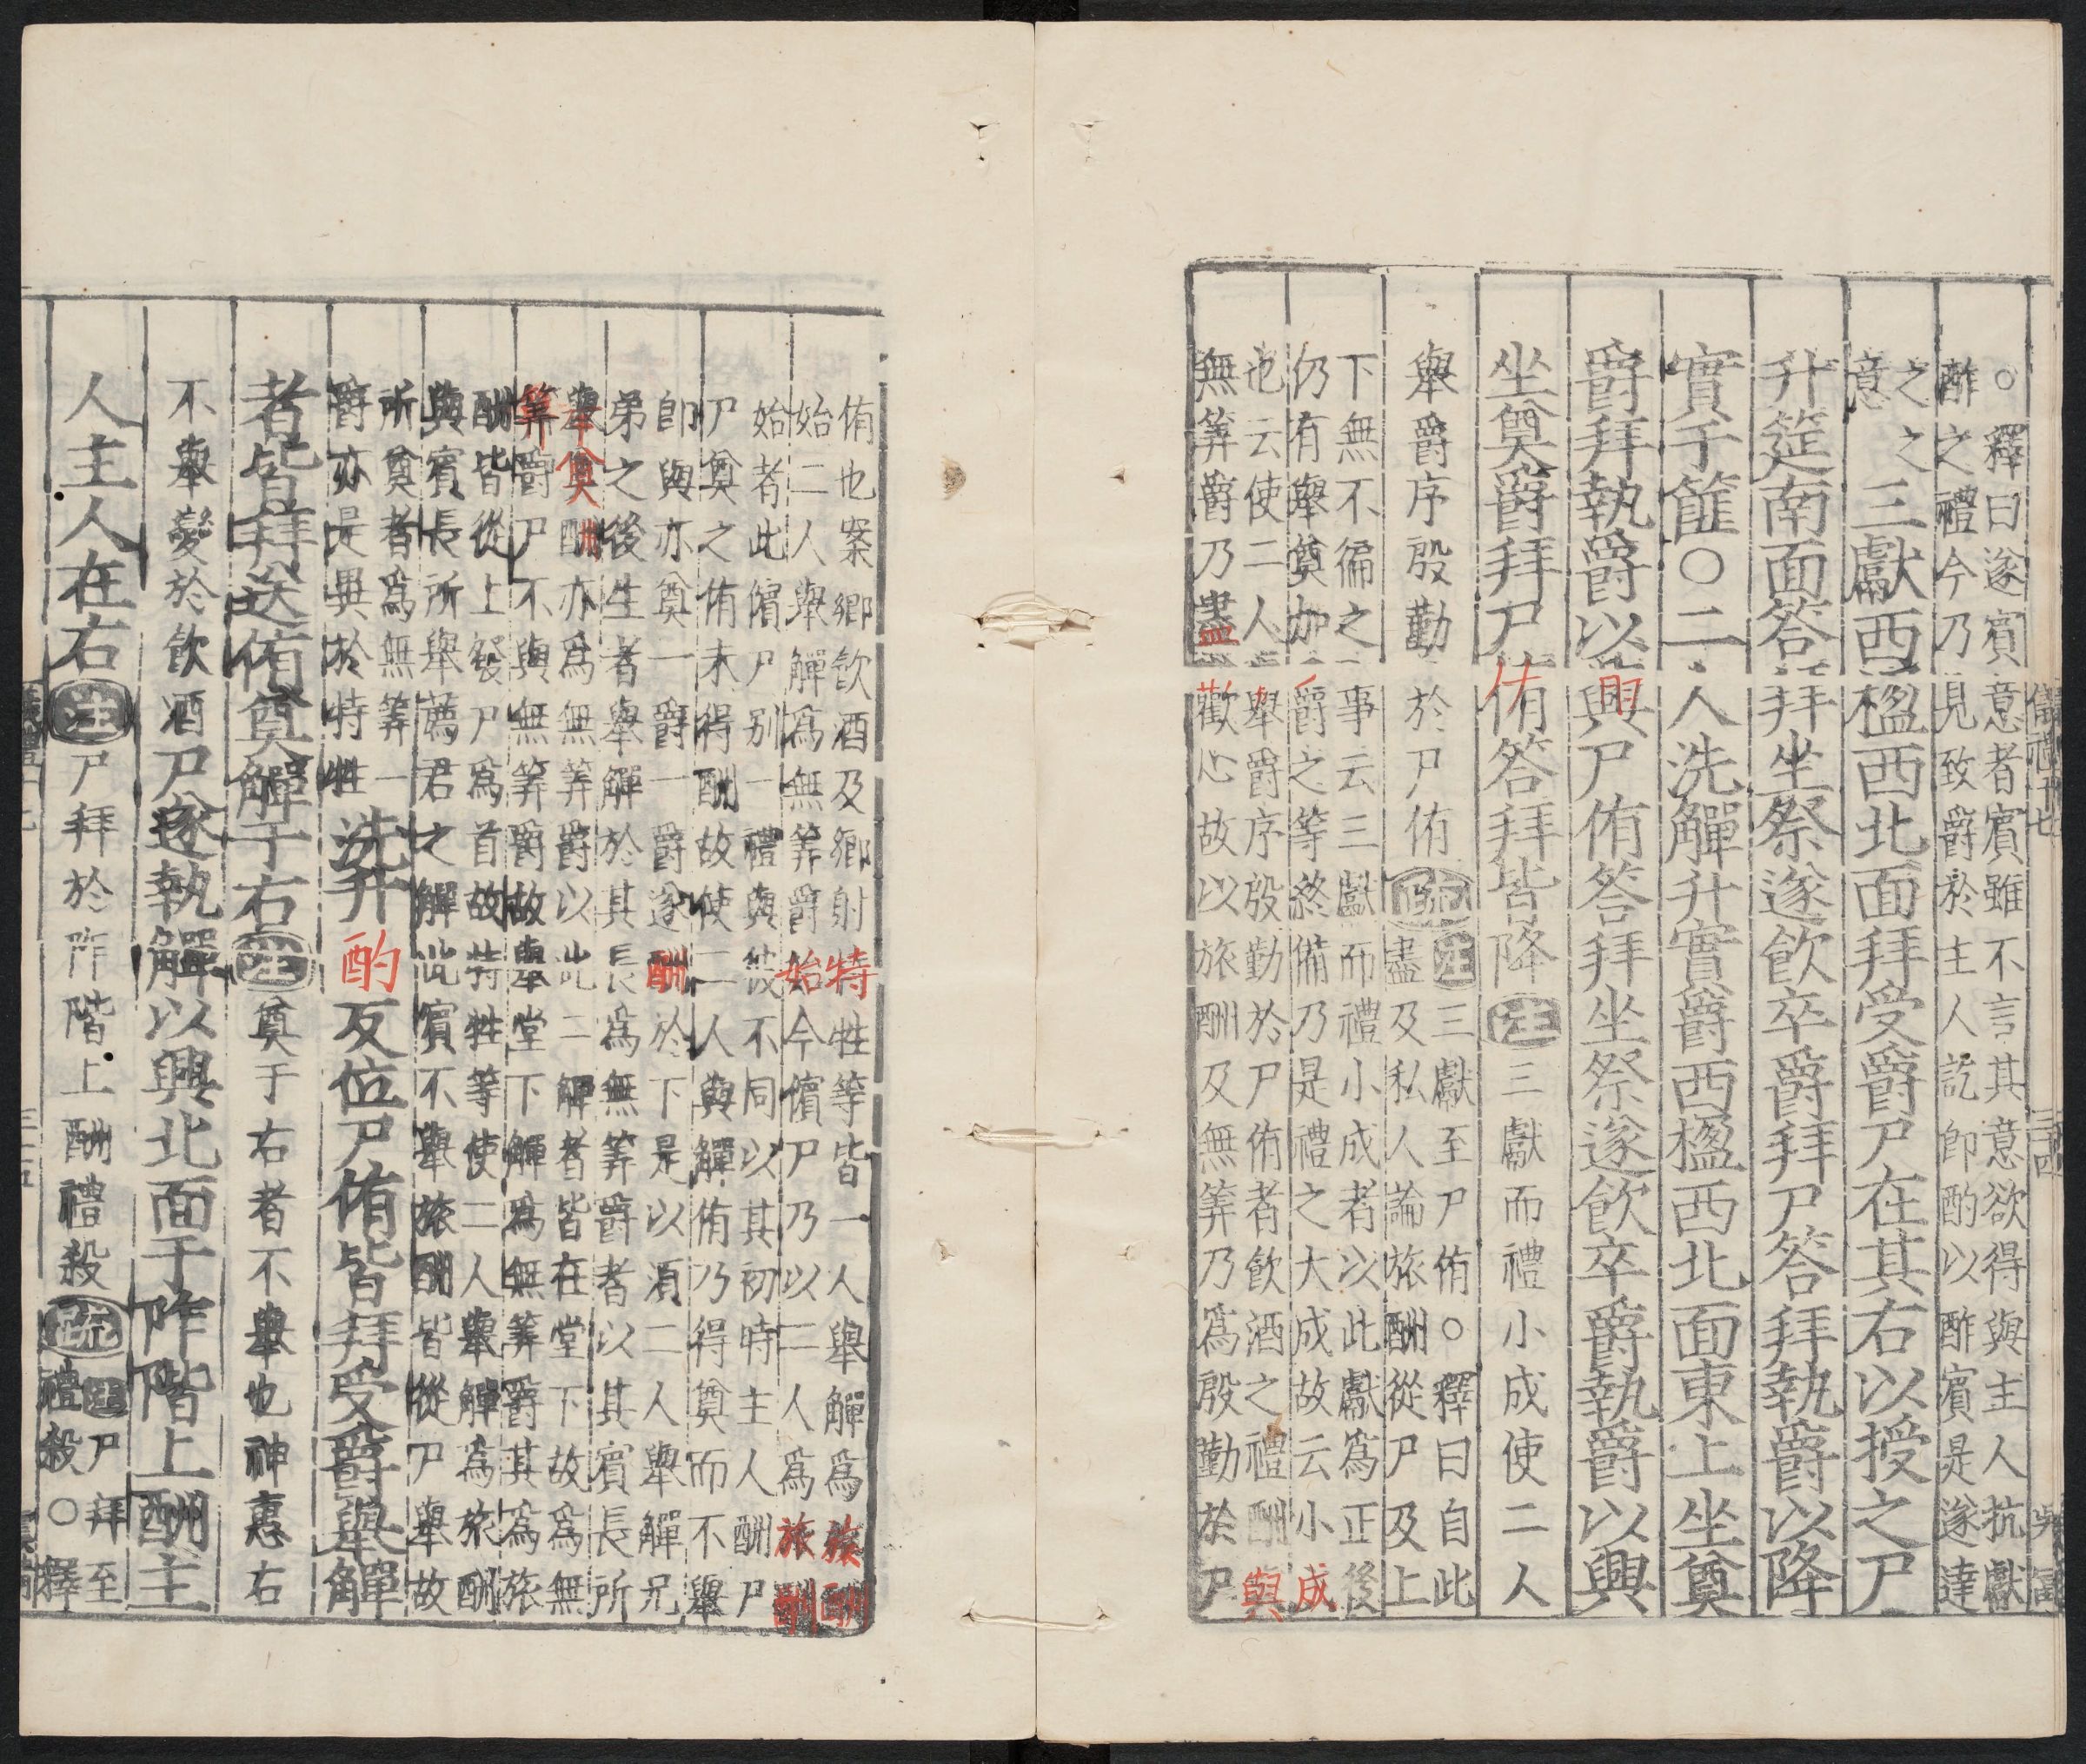 儀禮十七
三十四
○釋曰遂賓意者賓雖不言其意欲得與主人抗獻
酢之禮今乃見致爵於主人訖卽酌以酢賓是遂達
之之
意
三獻西楹西北面拜受爵尸在其右以授之尸
升筵南面答拜坐祭遂飲卒爵拜尸答拜執爵以降
實于篚○二人洗觶升實爵西楹西北面東上坐奠
爵拜執爵以興尸侑答拜坐祭遂飲卒爵執爵以興
坐奠爵拜尸侑答拜皆降注三獻而禮小成使二人
舉爵序殷勤於尸侑疏注三獻至尸侑○釋曰自此
盡及私人論旅酬從尸及上
下無不徧之事云三獻而禮小成者以此獻爲正後
仍有舉奠加爵之等終備乃是禮之大成故云小成
也云使二人舉爵序殷勤於尸侑者飲酒之禮酬與
無筭爵乃盡歡心故以旅酬及無筭乃爲殷勤於尸
侑也案鄉飲酒及鄉射特牲等皆一人舉觶爲旅酬
始二人舉觶爲無筭爵始今儐尸乃以二人爲旅酬
始者此儐尸別一禮與彼不同以其初時主人酬尸
尸奠之侑未得酬故使二人與觶侑乃得奠而不舉
卽與亦奠一爵一爵遂酬於下是以湏二人舉觶兄
弟之後生者舉觶於其長爲無筭爵者以其賓長所
舉奠酬亦爲無筭爵以此二觶者皆在堂下故爲無
筭爵尸不與無筭爵故舉堂下觶爲無筭爵其爲旅
酬皆從上發尸爲首故特牲等使二人舉觶爲旅酬
與賓長所舉薦君之觶此賓不舉旅酬皆從尸舉故
所奠者爲無筭一
爵亦是異於特牲
洗升酌反位尸侑皆拜受爵舉觶
者皆拜送侑奠觶于右注奠于右者不舉也神惠右
不舉變於飲酒尸遂執觶以興北面于阼階上酬主
人主人在右注尸拜於阼階上酬禮殺疏注尸拜至
禮殺○釋